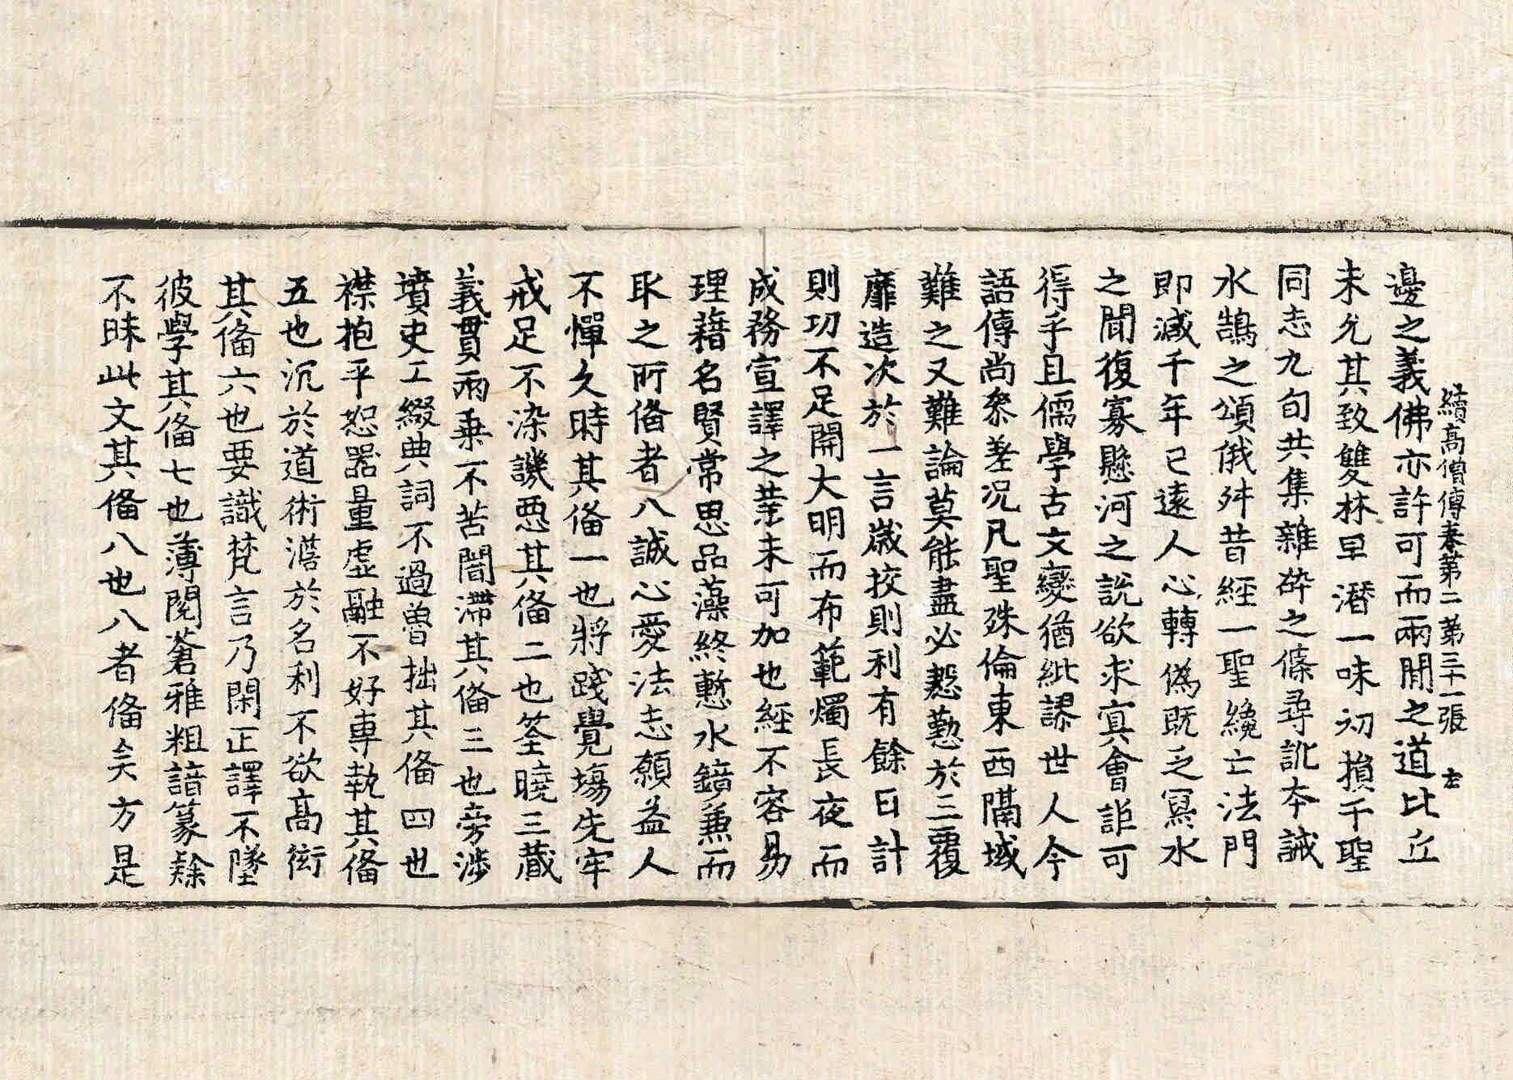 續高僧傳卷第二 第三十一張 左
邊之義佛亦許可而兩間之道比丘
未允其致雙林早潛一味初損千聖
同志九旬共集雜碎之條尋訛本誡
水鵠之頌俄舛昔經一聖纔亡法門
即減千年已遠人心轉偽既乏寫水
之聞復寡懸河之說欲求冥會詎可
得乎且儒學古文變猶紕謬世人今
語傳尚參差況凡聖殊倫東西隔域
難之又難論莫能盡必慇懃於三覆
靡造次於一言歲挍則利有餘日計
則功不足開大明而布範燭長夜而
成務宣譯之業未可加也經不容易
理藉名賢常思品藻終慙水鏡兼而
取之所俻者八誠心愛法志願益人
不憚久時其俻一也將踐覺場先牢
戒足不染譏惡其俻二也荃曉三藏
義貫兩乘不苦闇滯其俻三也旁涉
墳史工綴典詞不過魯拙其俻四也
襟抱平恕器量虛融不好專執其俻
五也沉於道術澹於名利不欲高衒
其俻六也要識梵言乃閑正譯不墜
彼學其俻七也薄閱蒼雅粗諳篆隸
不昧此文其俻八也八者俻矣方是